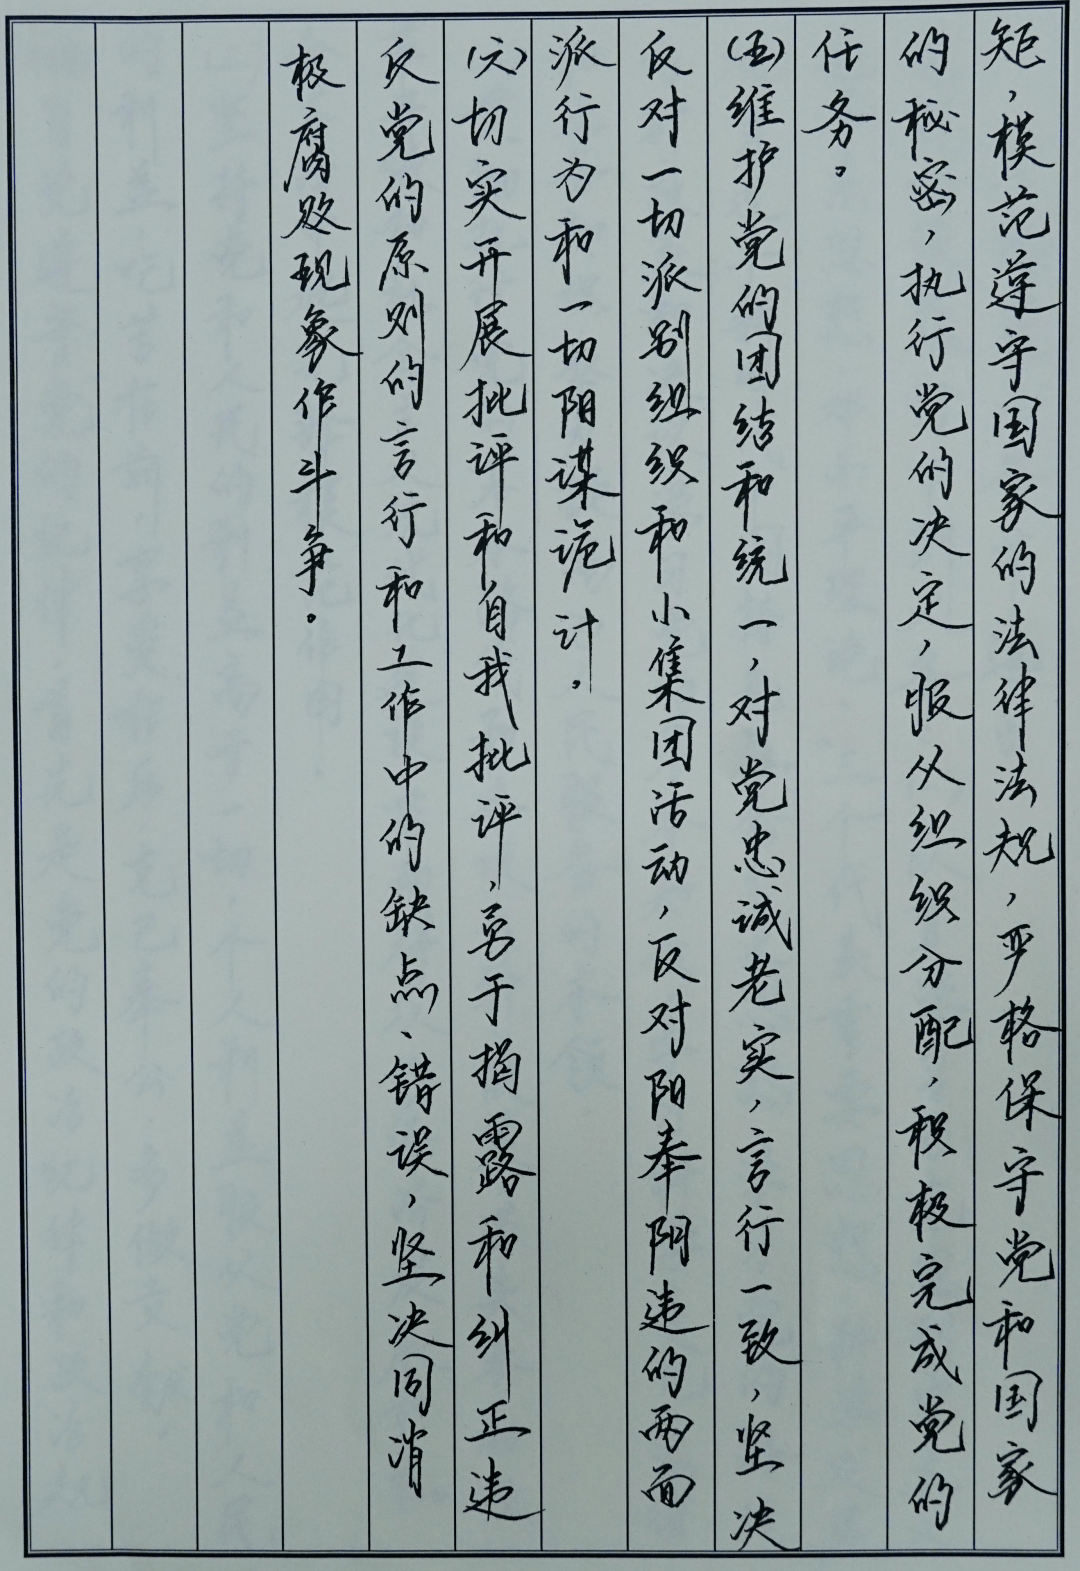 矩，模范遵守国家的法律法规，严格保守党和国家
的秘密，执行党的决定，服从组织分配，积极完成党的
任务。
（五）维护党的团结和统一，对党忠诚老实，言行一致，坚决
反对一切派别组织和小集团活动，反对阳奉阴违的两面
派行为和一切阴谋诡计。
（六）切实开展批评和自我批评，勇于揭露和纠正违
反党的原则的言行和工作中的缺点、错误，坚决同消
极腐败现象作斗争。